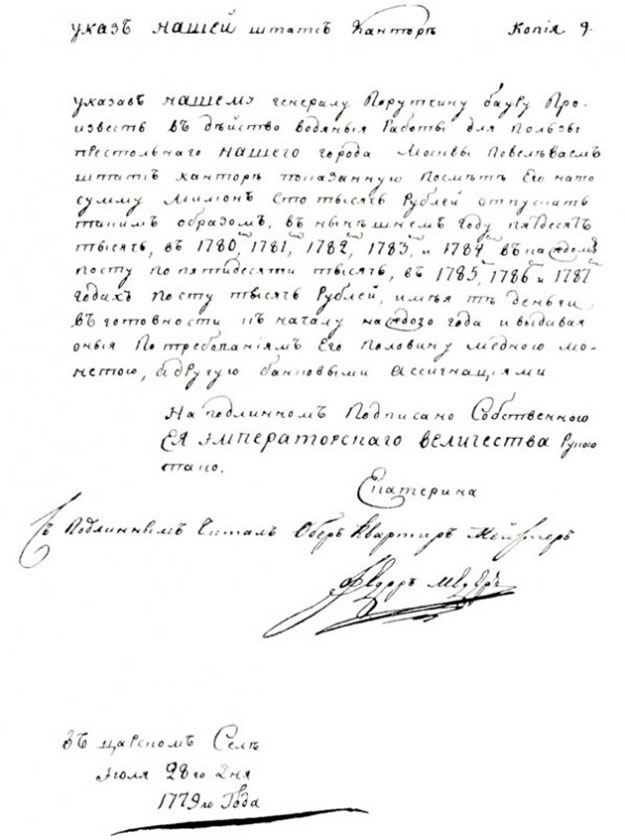 указъ нашей штатсъ Канторѣ Копія 9.
указавъ нашему генералу Порутчику бауру Про-
известь въ дѣйство водяныя Работы для пользы
престольнаго нашего города Москвы повелѣваемъ
штатсъ канторѣ показанную посмѣтѣ Его на то
сумму Милионъ сто тысячь Рублей отпускать
такимъ образомъ, въ нынѣшнемъ году пядесятъ
тысячь, въ 1780, 1781, 1782, 1783, и 1784 въ каждомъ
посту по пятидесяти тысячь, въ 1785, 1786 и 1787
годахъ по сту тысячь Рублей, имѣя тѣ деньги
въ готовности къ началу каждого года и выдавая
оныя По требованіямъ Его половину мѣдною мо-
нетою, а другую банковыми ассигнаціями
На подлинномъ Подписано Собственною
ЕЯ императорскаго величества Рукою
тако.
Екатерина
Съ Подлиннымъ Читалъ Оберъ Квартиръ Мейстеръ
Въ царскомъ Селѣ
Июля 28го Дня
1779го Года